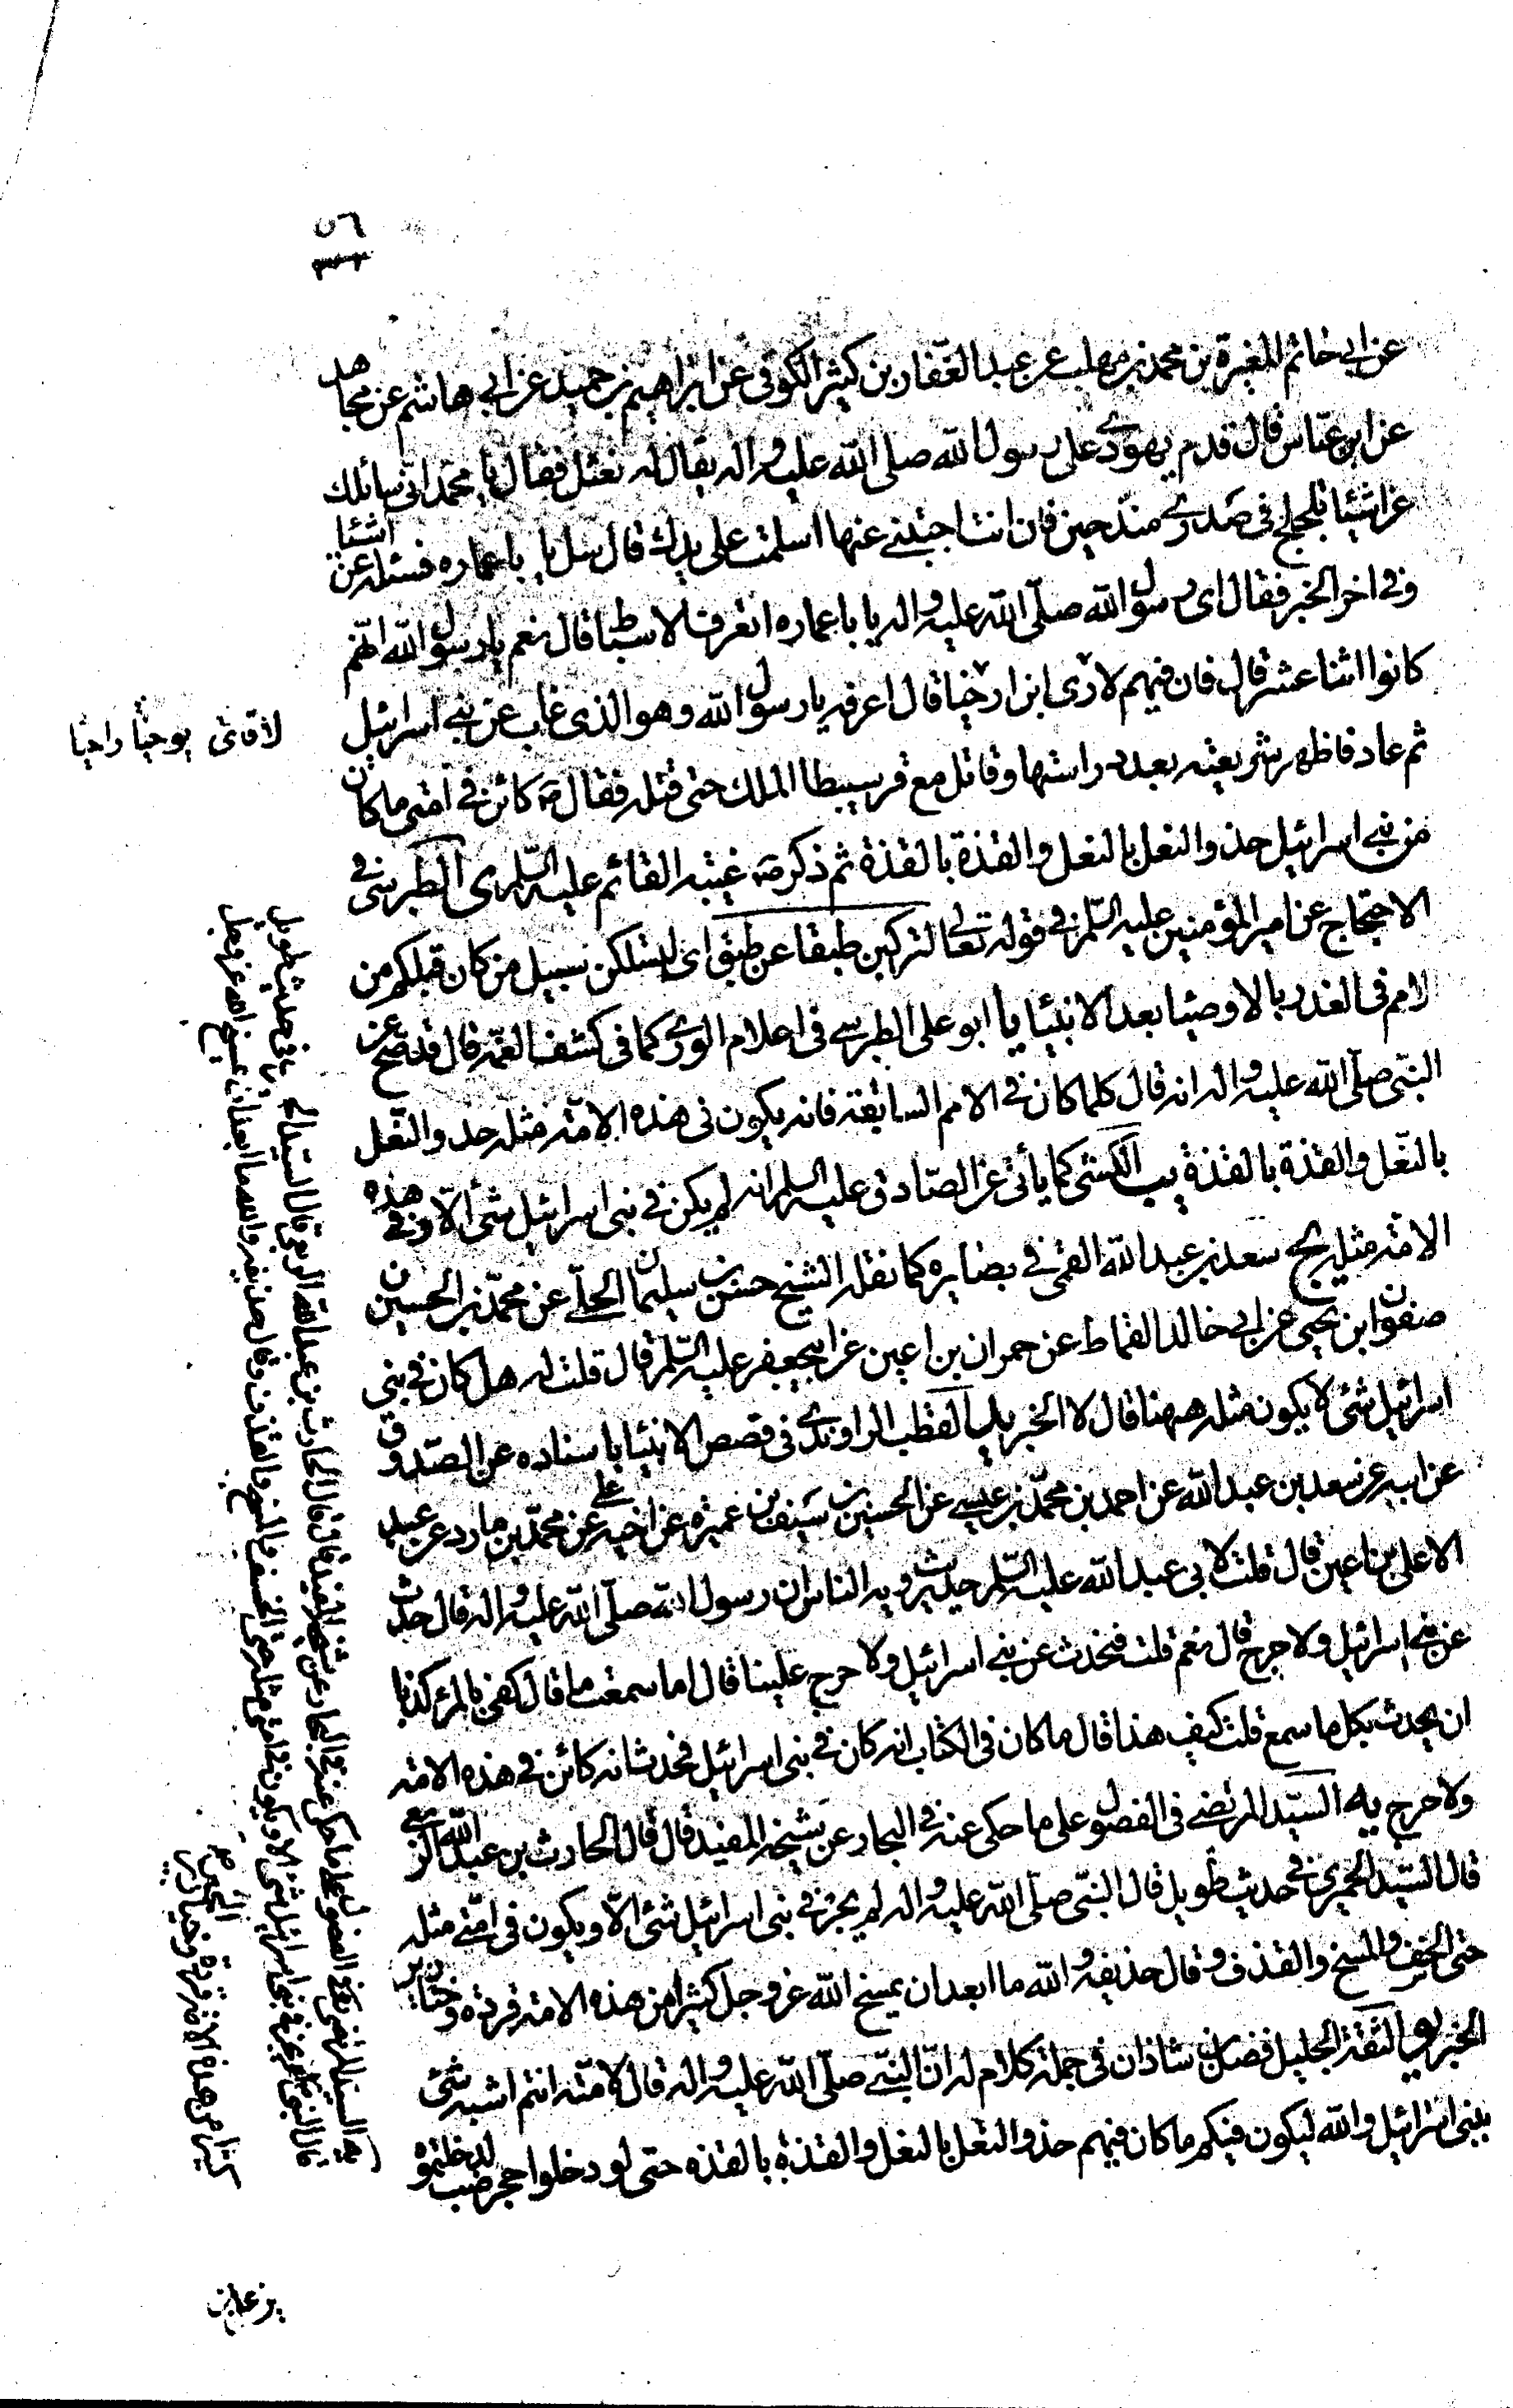 ٥٦
عن ابي حاتم المغيرة بن محمد بن مهلب عن عبد الغفار بن كثير الكوفى عن ابراهيم بن حميد عن ابي هاشم عن مجاهد
عن ابن عباس قال قدم يهودي على رسول الله صلى الله عليه و اله يقال له نعثل فقال يا محمد انى سائلك
عن اشيئا تلجلج فى صدرى منذ حين فان انت اجبتنى عنها اسلمت على يدك قال سل يا باعماره فسئله عن اشيئا
و فى اخر الخبر فقال اى رسول الله صلى الله عليه و اله يا باعماره اتعرف الاسباط قال نعم يا رسول الله انهم
كانوا اثنا عشر قال فان فيهم لاوى ابن ارحيا قال اعرفه يا رسول الله و هو الذى غاب عن بنى اسرائيل
ثم عاد فاظهر شريعته بعد دراستها و قاتل مع قرسيطا الملك حتى قتله فقال ص كائن فى امتى ما كان
من بنى اسرائيل حذو النعل بالنعل و القذة بالقذة ثم ذكر ص غيبة القائم عليه السلم ى الطبرسى فى
الاحتجاج عن امير المؤمنين عليه السلم فى قوله تعالى لتركبن طبقا عن طبق اى لتسلكن سبيل من كان قبلكم من
الامم فى الغدر بالاوصيا بعد الانبيا يا ابو على الطبرسى فى اعلام الورى كما فى كشف الغمه قال قد صح عن
النبى صلى الله عليه و اله انه قال كلما كان فى الامم السابقة فانه يكون فى هذه الامة مثله حذو النعل
بالنعل و القذة بالقذة يب الكشى كما يأتى عن الصادق عليه السلم انه لم يكن فى بنى اسرائيل شئ الا و فى هذه
الامة مثله يج سعد بن عبد الله القمى فى بصايره كما نقله الشيخ حسن بن سليمان الحلى عن محمد بن الحسين عن
صفوان ابن يحيى عن ابى خالد القماط عن حمران بن اعين عن ابيجعفر عليه السلم قال قلت له هل كان فى بنى
اسرائيل شئ لا يكون مثله ههنا قال لا الخبر يد القطب الراوندى فى قصص الانبيا باسناده عن الصدوق
عن ابيه عن سعد بن عبد الله عن احمد بن محمد بن عيسى عن الحسين بن سيف بن عميره عن اخيه على عن محمد بن مارد عن عبد
الاعلى بن اعين قال قلت لابى عبد الله عليه السلم حديث يرويه الناس ان رسول الله صلى الله عليه و اله قال حدث
عن بنى اسرائيل و لا حرج قال نعم قلت فنحدث عن بنى اسرائيل و لا حرج علينا قال اما سمعت ما قال كفى بالمرء كذبا
ان يحدث بكل ما سمع قلت كيف هذا قال ما كان فى الكتاب انه كان فى بنى اسرائيل فحدث انه كائن فى هذه الامة
و لا حرج يه السيد المرتضى فى الفصول على ما حكى عنه فى البحار عن شيخه المفيد قال قال الحارث بن عبد الله الربعى
قال السيد الحميرى فى حديث طويل قال النبى صلى الله عليه و اله لم يجر فى بنى اسرائيل شئ الا و يكون فى امتى مثله
حتى الخسف و المسخ و القذف و قال حذيفه و الله ما ابعد ان يمسخ الله عز و جل كثيرا من هذه الامة قردة و خنازير
الخبر يو الثقة الجليل فضل بن شاذان فى جملة كلام له ان النبى صلى الله عليه و اله قال لامته انتم اشبه شئ
ببنى اسرائيل و الله ليكون فيكم ما كان فيهم حذو النعل بالنعل و القذة بالقذه حتى لو دخلوا حجر ضب لدخلتموه
يه السيد المرتضى فى الفصول على ما حكى عنه فى البحار عن شيخه المفيد قال قال الحارث بن عبد الله الربعى قال السيد فى حديث طويل
قال النبى لم يجر فى بنى اسرائيل شئ الا و يكون فى امتى مثله حتى الخسف و المسخ و القذف و قال حذيفه و الله ما ابعد ان يمسخ الله عز و جل
كثيرا من هذه الامة قردة و خنازير الخبر